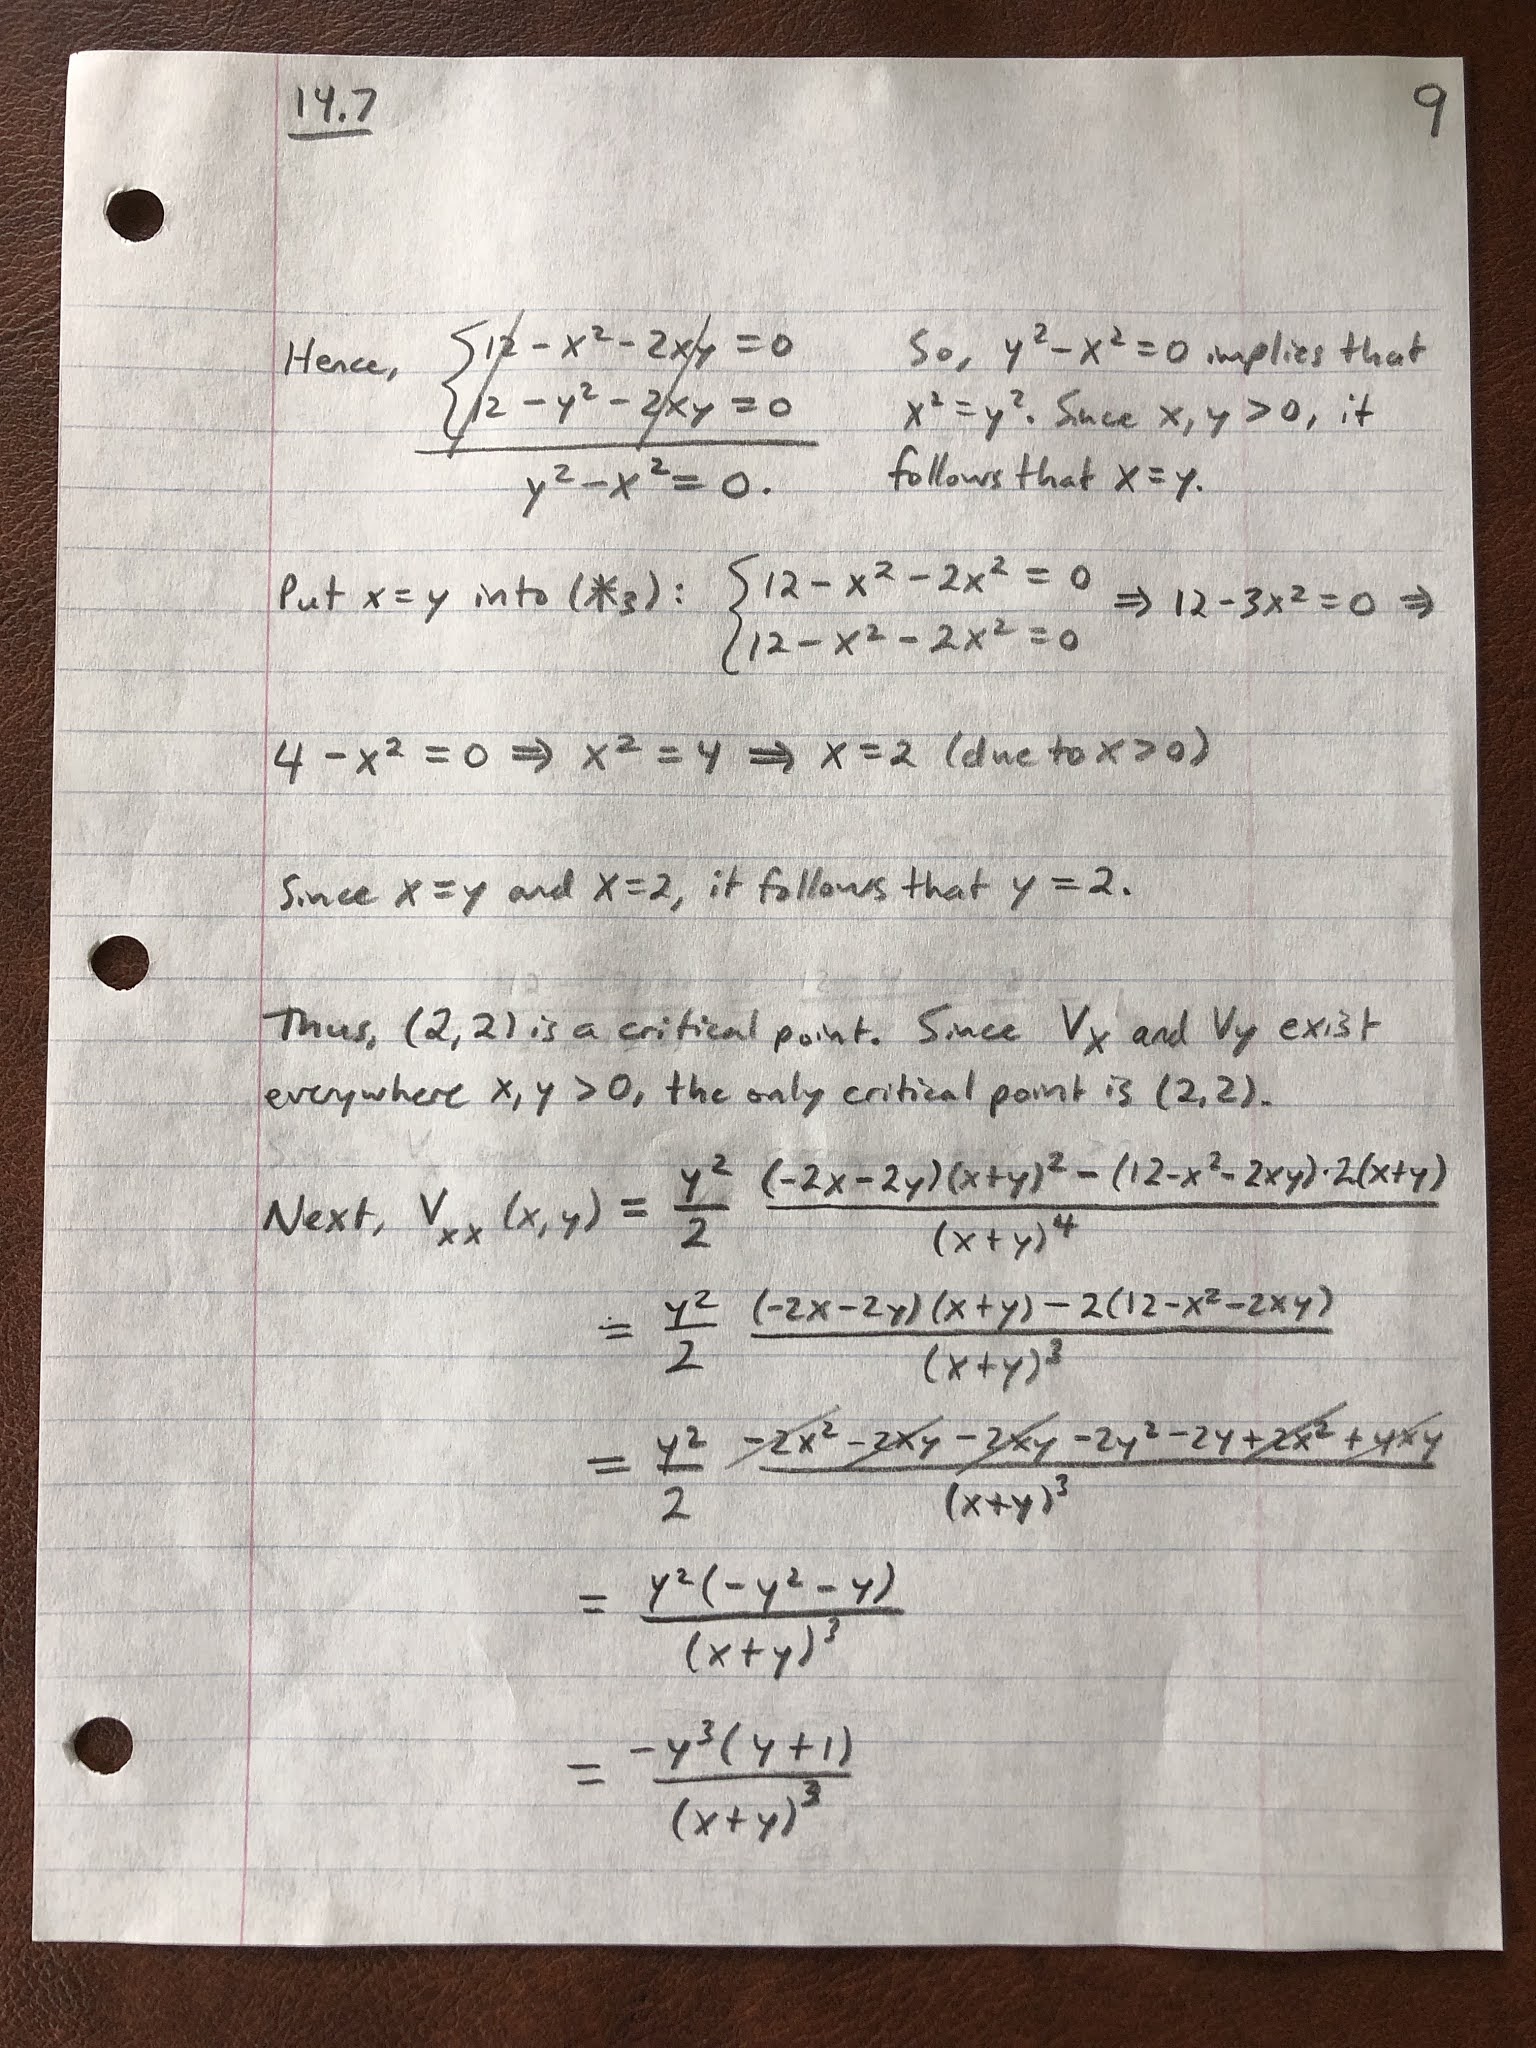 14.7
9
Hence, { 12 - x² - 2xy = 0
12 - y² - 2xy = 0
y² - x² = 0.
So, y² - x² = 0 implies that
x² = y². Since x, y > 0, it
follows that x = y.
Put x = y into (*₃): { 12 - x² - 2x² = 0
12 - x² - 2x² = 0
⇒ 12 - 3x² = 0 ⇒
4 - x² = 0 ⇒ x² = 4 ⇒ x = 2 (due to x > 0)
Since x = y and x = 2, it follows that y = 2.
Thus, (2, 2) is a critical point. Since Vₓ and Vy exist
everywhere x, y > 0, the only critical point is (2, 2).
Next, Vₓₓ (x, y) = y²/2 (-2x - 2y)(x+y)² - (12 - x² - 2xy)·2(x+y) / (x+y)⁴
= y²/2 (-2x - 2y)(x+y) - 2(12 - x² - 2xy) / (x+y)³
= y²/2 -2x² - 2xy - 2xy - 2y² - 24 + 2x² + 4xy / (x+y)³
= y²(-y² - y) / (x+y)³
= -y³(y+1) / (x+y)³